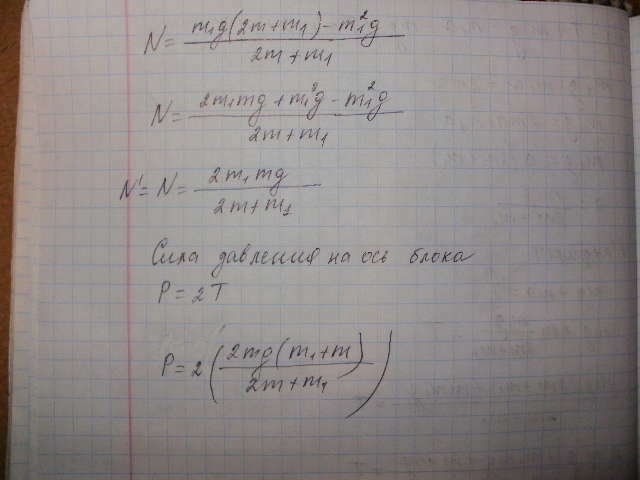 N = \frac{m_1g(2m+m_1) - m_1^2g}{2m+m_1}
N = \frac{2m_1mg + m_1^2g - m_1^2g}{2m+m_1}
N' = N = \frac{2m_1mg}{2m+m_1}
Сила давления на ось блока
P = 2T
P = 2\left(\frac{2mg(m_1+m)}{2m+m_1}\right)